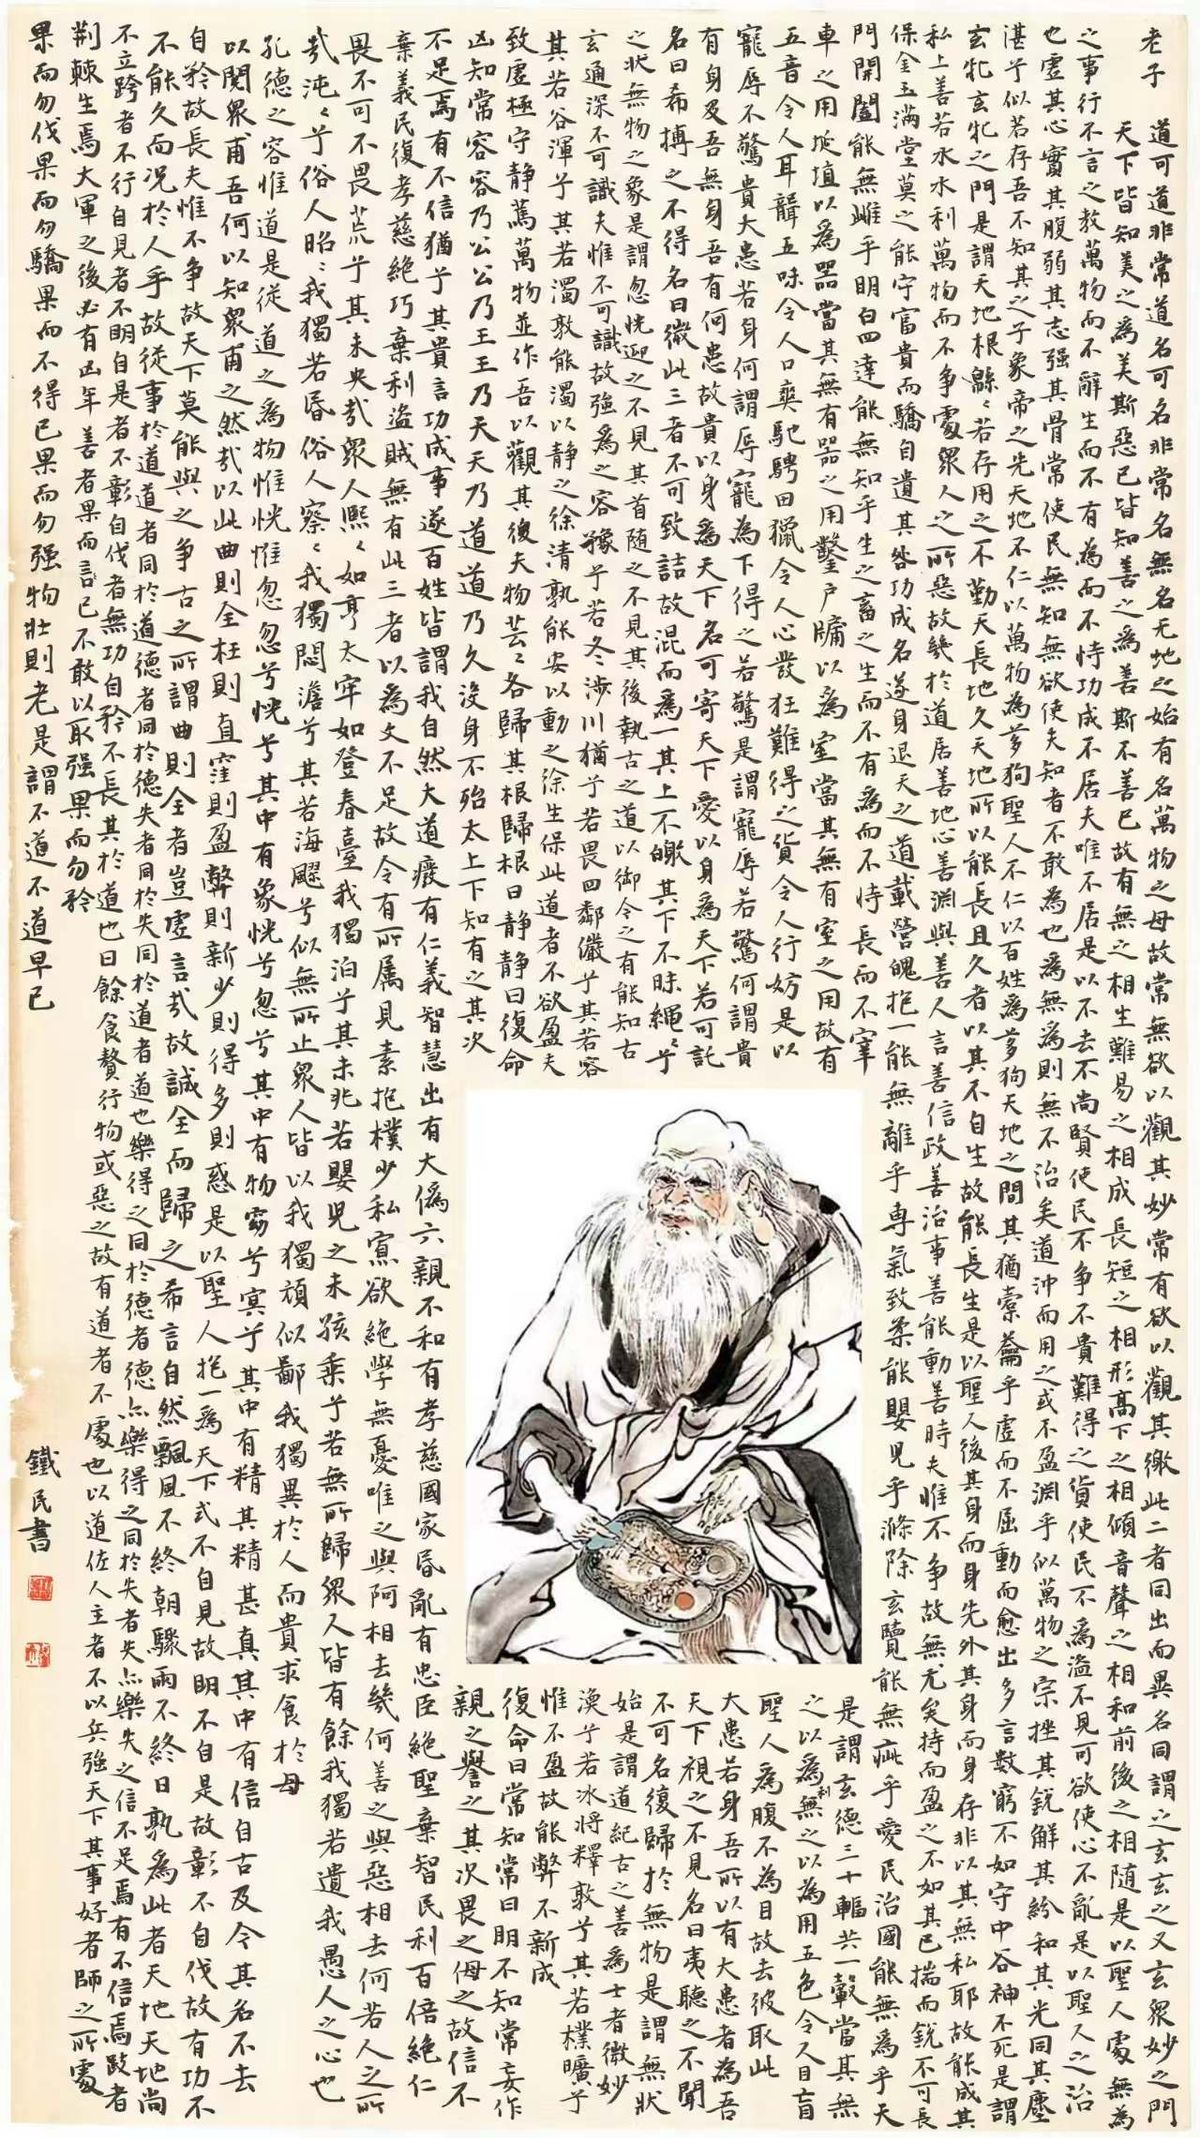 老子
道可道非常道名可名非常名無名无地之始有名萬物之母故常無欲以觀其妙常有欲以觀其徼此二者同出而異名同謂之玄玄之又玄衆妙之門
天下皆知美之為美斯惡已皆知善之為善斯不善已故有無之相生難易之相成長短之相形高下之相傾音聲之相和前後之相隨是以聖人處無為
之事行不言之教萬物而不辭生而不有為而不恃功成不居夫唯不居是以不去不尚賢使民不争不貴難得之貨使民不為盗不見可欲使心不亂是以聖人之治
也虚其心實其腹弱其志强其骨常使民無知無欲使夫知者不敢為也為無為則無不治矣道沖而用之或不盈淵乎似萬物之宗挫其鋭解其紛和其光同其塵
湛乎似若存吾不知其之子象帝之先天地不仁以萬物為芻狗聖人不仁以百姓為芻狗天地之間其猶橐籥乎虚而不屈動而愈出多言數窮不如守中谷神不死是謂
玄牝玄牝之門是謂天地根緜〻若存用之不勤天長地久天地所以能長且久者以其不自生故能長生是以聖人後其身而身先外其身而身存非以其無私耶故能成其
私上善若水水利萬物而不争處衆人之所惡故幾於道居善地心善淵與善人言善信政善治事善能動善時夫惟不争故無尤矣持而盈之不如其已揣而鋭不可長
保金玉滿堂莫之能守富貴而驕自遺其咎功成名遂身退天之道載營魄抱一能無離乎専氣致柔能嬰兒乎滌除玄覽能無疵乎愛民治國能無為乎天
門開闔能無雌乎明白四達能無知乎生之畜之生而不有為而不恃長而不宰是謂玄德三十輻共一轂當其無
車之用埏埴以為器當其無有器之用鑿户牖以為室當其無有室之用故有之以為利無之以為用五色令人目盲
五音令人耳聾五味令人口爽馳騁田獵令人心發狂難得之貨令人行妨是以聖人為腹不為目故去彼取此
寵辱不驚貴大患若身何謂辱寵為下得之若驚是謂寵辱若驚何謂貴大患若身吾所以有大患者為吾
有身及吾無身吾有何患故貴以身為天下名可寄天下愛以身為天下若可託天下視之不見名曰夷聽之不聞
名曰希搏之不得名曰微此三者不可致詰故混而為一其上不皦其下不昧繩〻兮不可名復歸於無物是謂無狀
之狀無物之象是謂忽恍迎之不見其首随之不見其後執古之道以御今之有能知古始是謂道紀古之善為士者微妙
玄通深不可識夫惟不可識故強為之容豫兮若冬涉川猶兮若畏四鄰儼兮其若容渙兮若冰將釋敦兮其若樸曠兮
其若谷渾兮其若濁孰能濁以静之徐清孰能安以動之徐生保此道者不欲盈夫惟不盈故能弊不新成
致虚極守静篤萬物並作吾以觀其復夫物芸〻各歸其根歸根曰静静曰復命復命曰常知常曰明不知常妄作
凶知常容容乃公公乃王王乃天天乃道道乃久没身不殆太上下知有之其次親之譽之其次畏之侮之故信不
不足焉有不信猶兮其貴言功成事遂百姓皆謂我自然大道癈有仁義智慧出有大偽六親不和有孝慈國家昏亂有忠臣絶聖棄智民利百倍絶仁
棄義民復孝慈絶巧棄利盗賊無有此三者以為文不足故令有所属見素抱樸少私寡欲絶學無憂唯之與阿相去幾何善之與惡相去何若人之所
畏不可不畏荒兮其未央哉衆人熙〻如享太牢如登春臺我獨泊兮其未兆若嬰兒之未孩乘兮若無所歸衆人皆有餘我獨若遺我愚人之心也
哉沌〻兮俗人昭〻我獨若昏俗人察〻我獨悶澹兮其若海飂兮似無所止衆人皆以我獨頑似鄙我獨異於人而貴求食於母
孔德之容惟道是從道之為物惟恍惟忽忽兮恍兮其中有象恍兮忽兮其中有物窈兮冥兮其中有精其精甚真其中有信自古及今其名不去
以閲衆甫吾何以知衆甫之然哉以此曲則全枉則直窪則盈弊則新少則得多則惑是以聖人抱一為天下式不自見故明不自是故彰不自伐故有功不
自矜故長夫惟不争故天下莫能與之争古之所謂曲則全者豈虚言哉故誠全而歸之希言自然飄風不終朝驟雨不終日孰為此者天地天地尚
不能久而况於人乎故從事於道道者同於道德者同於德失者同於失同於道者道也樂得之同於德者德亦樂得之同於失者失亦樂失之信不足焉有不信焉跂者
不立跨者不行自見者不明自是者不彰自伐者無功自矜不長其於道也曰餘食贅行物或惡之故有道者不處也以道佐人主者不以兵強天下其事好者師之所處
荆棘生焉大軍之後必有凶年善者果而言已不敢以取强果而勿矜
果而勿伐果而勿驕果而不得已果而勿强物壮則老是謂不道不道早已
鐵民書